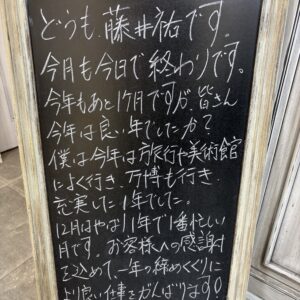 どうも、藤井祐です。
今月も今日で終わりです。
今年もあと1ケ月ですが、皆さん
今年は良い年でしたか？
僕は今年は旅行や美術館
によく行き、万博も行き、
充実した1年でした。
12月はやはり1年で1番忙しい
月です。お客様への感謝も
込めて、一年の締めくくりに
より良い仕事をがんばります